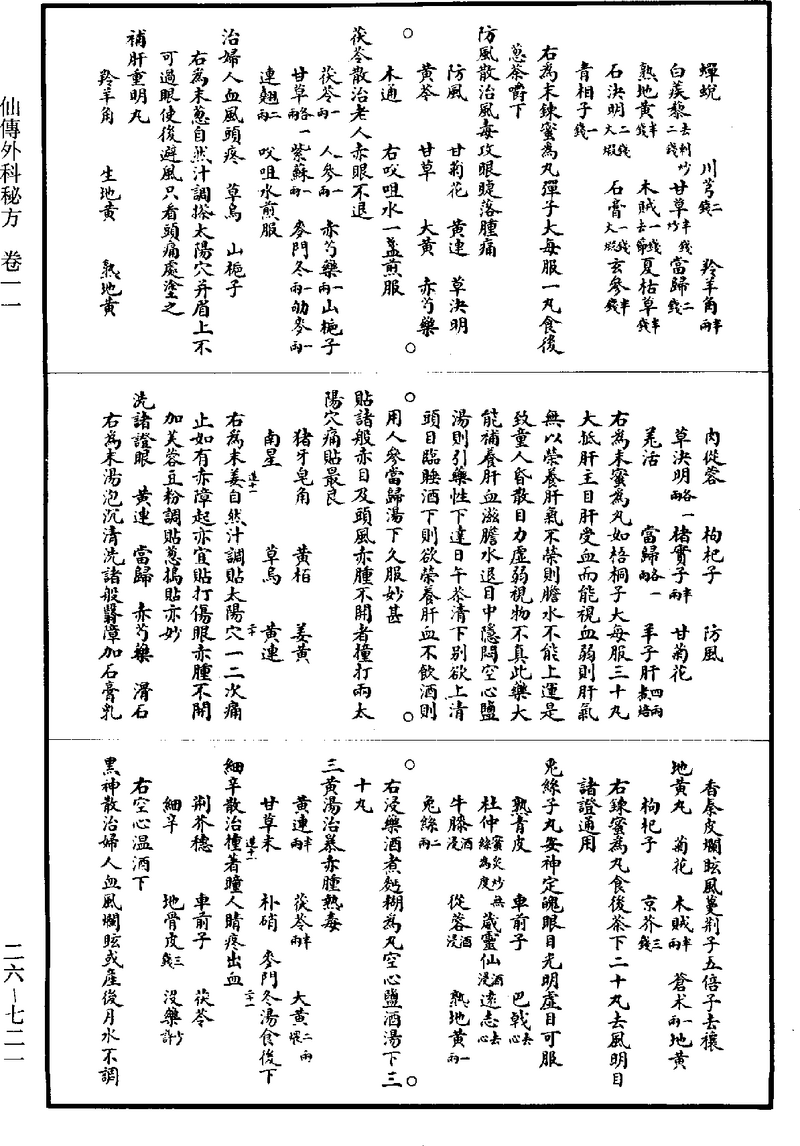 仙傳外科秘方 卷一一
二六—七二一
蟬蛻 川芎二錢 羚羊角半兩
白蒺藜去刺炒二錢 甘草半錢炒 當歸二錢
熟地黃半錢 木賊一錢去節 夏枯草半錢
石決明二錢火煅 石膏一錢火煅 玄參半錢
青相子一錢
右為末鍊蜜為丸彈子大每服一丸食後
葱茶嚼下
防風散治風毒攻眼睫落腫痛
防風 甘菊花 黃連 草決明
黃芩 甘草 大黃 赤芍藥
木通 右㕮咀水一盞煎服
茯苓散治老人赤眼不退
茯苓一兩 人參一兩 赤芍藥一兩 山梔子
甘草一兩畧 紫蘇一兩 麥門冬一兩 幼麥一兩
連翹二兩 㕮咀水煎服
治婦人血風頭疼 草烏 山梔子
右為末葱自然汁調搽太陽穴并眉上不
可過眼使後避風只看頭痛處塗之
補肝重明丸
羚羊角 生地黃 熟地黃
肉從蓉 枸杞子 防風
草決明一兩畧 楮實子半兩 甘菊花
羌活 當歸一兩畧 羊子肝四兩煮焙
右為末蜜為丸如梧桐子大每服三十丸
大抵肝主目肝受血而能視血弱則肝氣
無以榮養肝氣不榮則膽水不能上運是
致童人昏散目力虛弱視物不真此藥大
能補養肝血滋膽水退目中隱悶空心鹽
湯則引藥性下達日午茶清下别欲上清
頭目臨睡酒下則欲榮養肝血不飲酒則
用人參當歸湯下久服妙甚
貼諸般赤目及頭風赤腫不開者撞打兩太
陽穴痛貼最良
猪牙皂角 黃栢 姜黃
南星 草烏 黃連
右為末姜自然汁調貼太陽穴一二次痛
止如有赤障起亦宜貼打傷眼赤腫不開
加芙蓉豆粉調貼葱搗貼亦妙
洗諸證眼 黃連 當歸 赤芍藥 滑石
右為末湯泡沉清洗諸般翳障加石膏乳
香秦皮爛眩風蔓荆子五倍子去穰
地黃丸 菊花 木賊半兩 蒼术一兩 地黃
枸杞子 京芥三錢
右鍊蜜為丸食後茶下二十丸去風明目
諸證通用
兎絲子丸安神定魄眼目光明虛目可服
熟青皮 車前子 巴戟去心
杜仲蜜炙炒無絲為度 葳靈仙酒浸 遠志去心
牛膝酒浸 從蓉酒浸 熟地黃一兩
兔絲二兩
右浸藥酒煮麪糊為丸空心鹽酒湯下三
十丸
三黃湯治暴赤腫熱毒
黃連半兩 茯苓半兩 大黃二兩煨
甘草末 朴硝 麥門冬湯食後下
細辛散治撞著瞳人睛疼出血
荆芥穗 車前子 茯苓
細辛 地骨皮三錢 沒藥少許
右空心温酒下
黑神散治婦人血風爛眩或産後月水不調